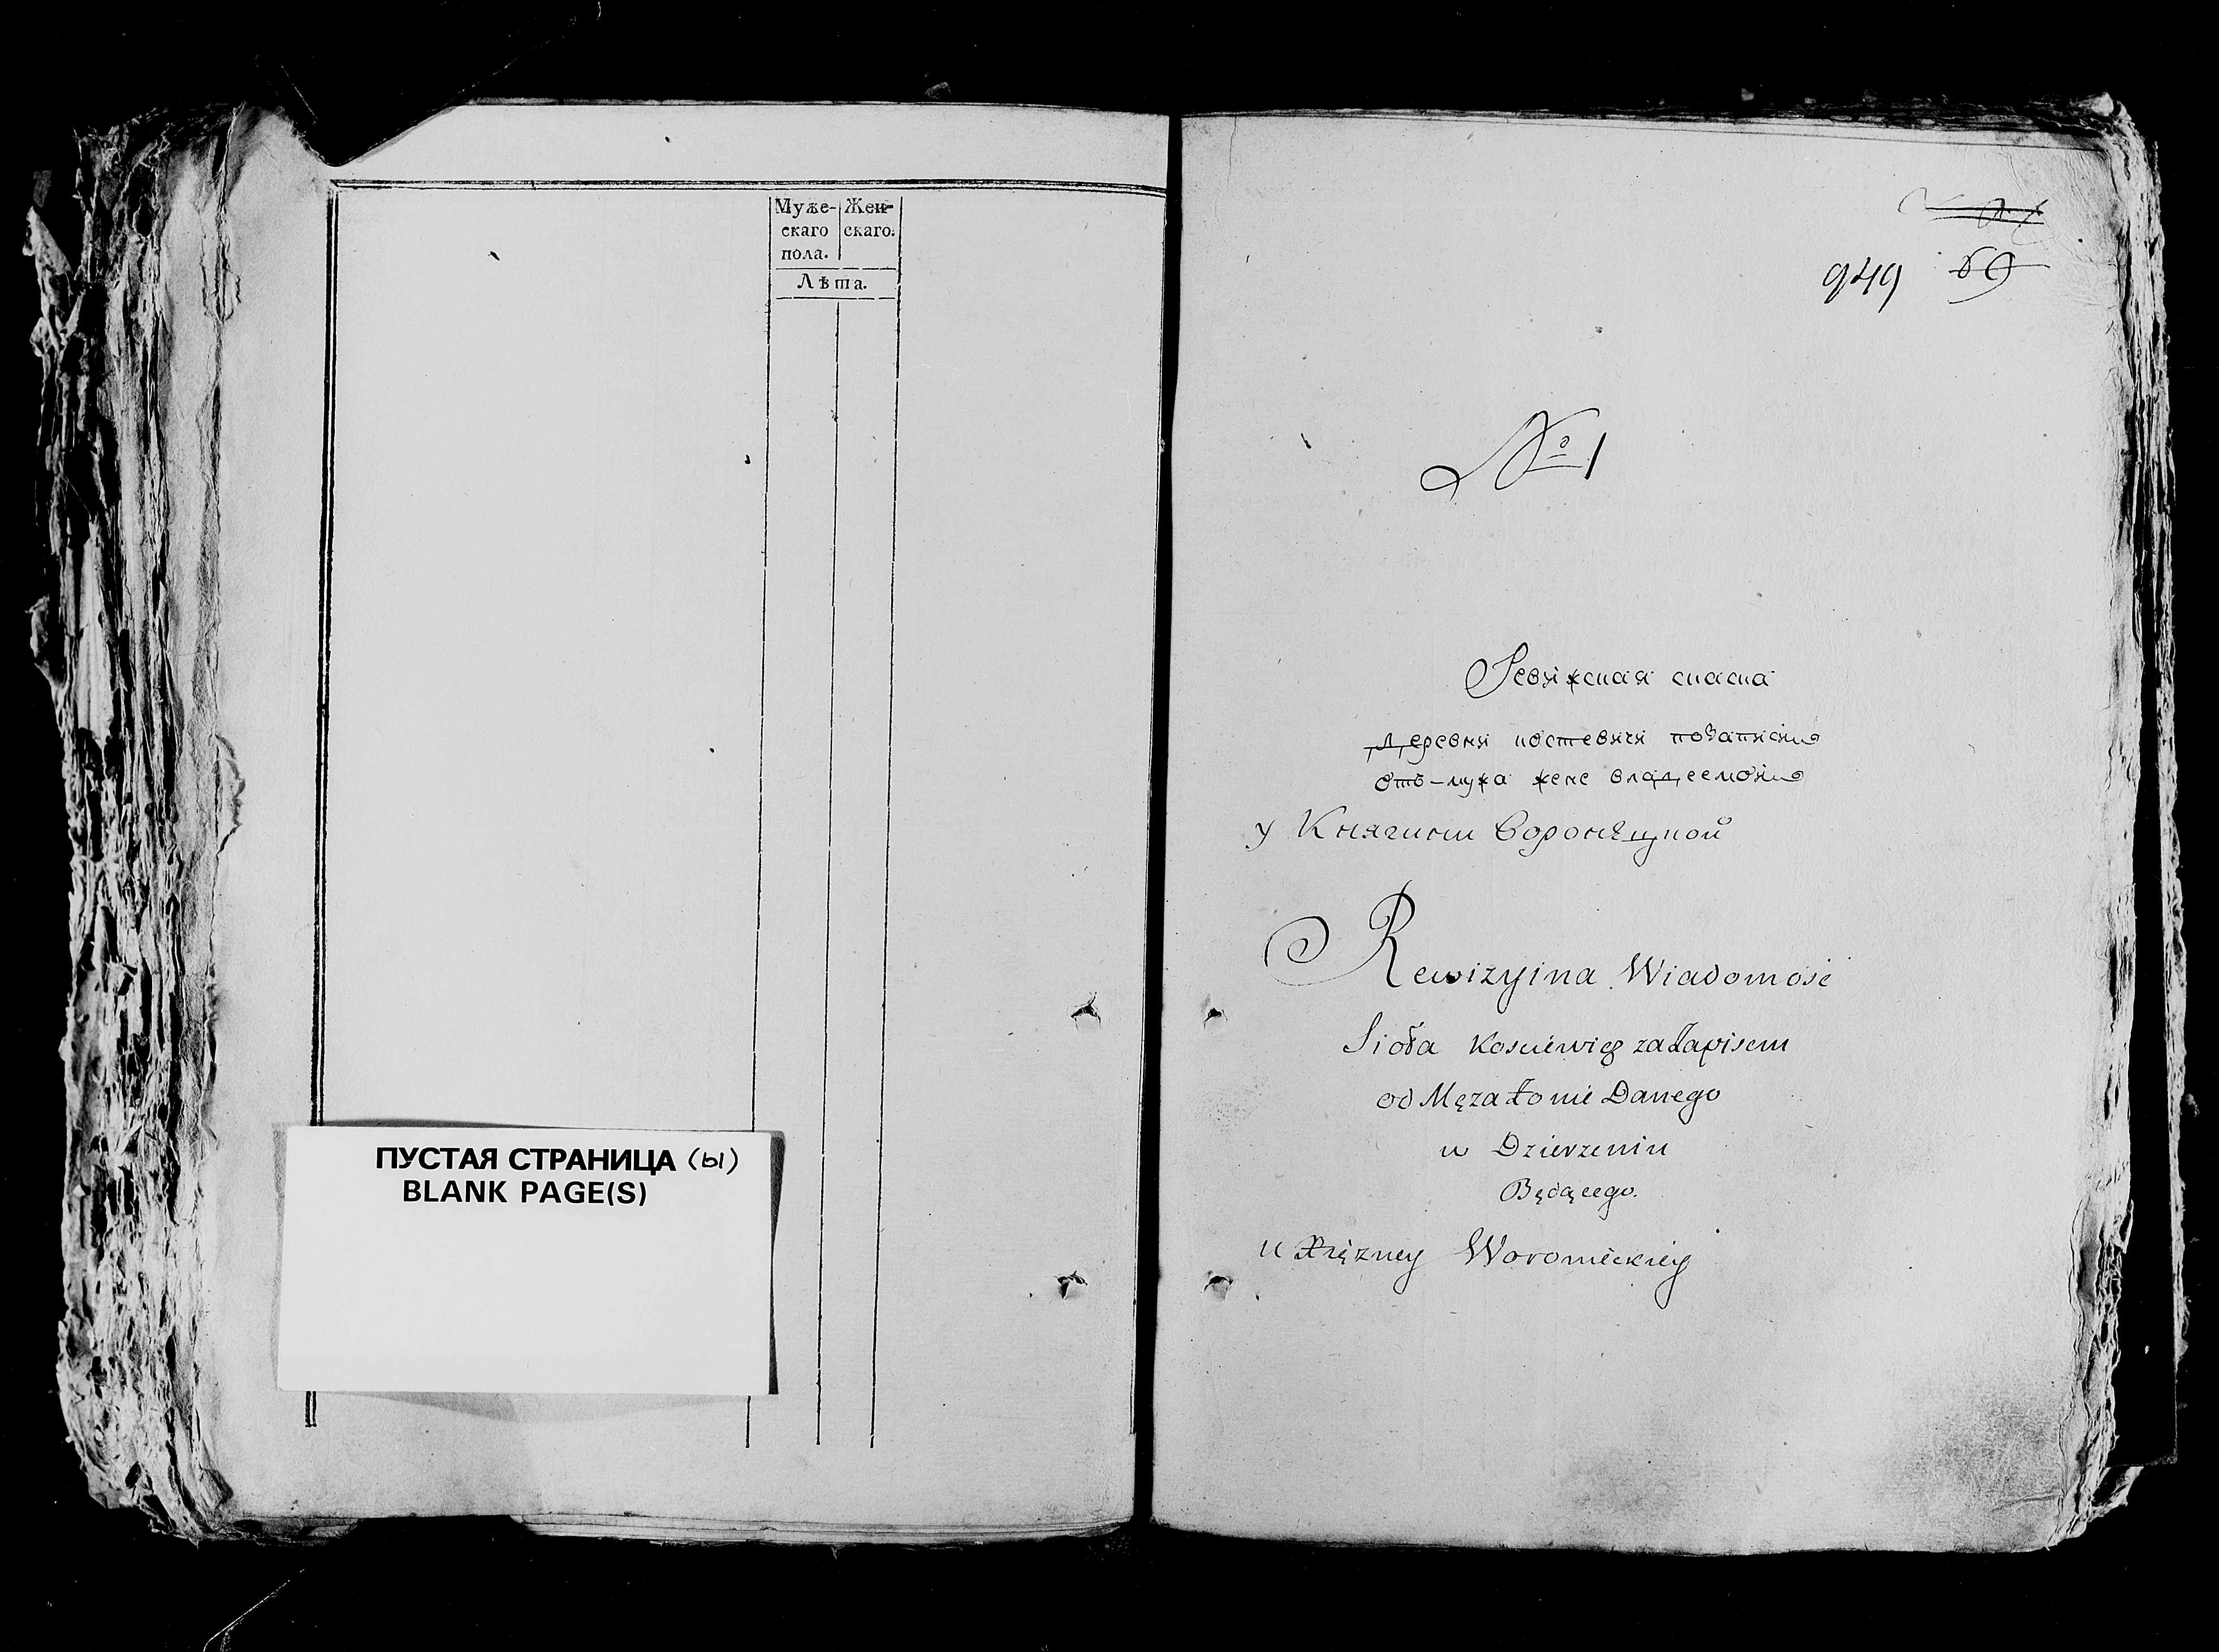 Муже- Жен-
скаго скаго.
пола.
Лѣта.
ПУСТАЯ СТРАНИЦА (ы)
BLANK PAGE(S)
949 69
№ 1
Ревижская скаска
Деревни костевичи подаписию
отъ-мужа жене владеемою
у Княгини Воронѣцкой
Rewizyina Wiadomość
Sioła Kosciewicz za Zapisem
od Męza Żonie Danego
w Dzierzeniu
Będącego.
u Xiężney Woronieckiey